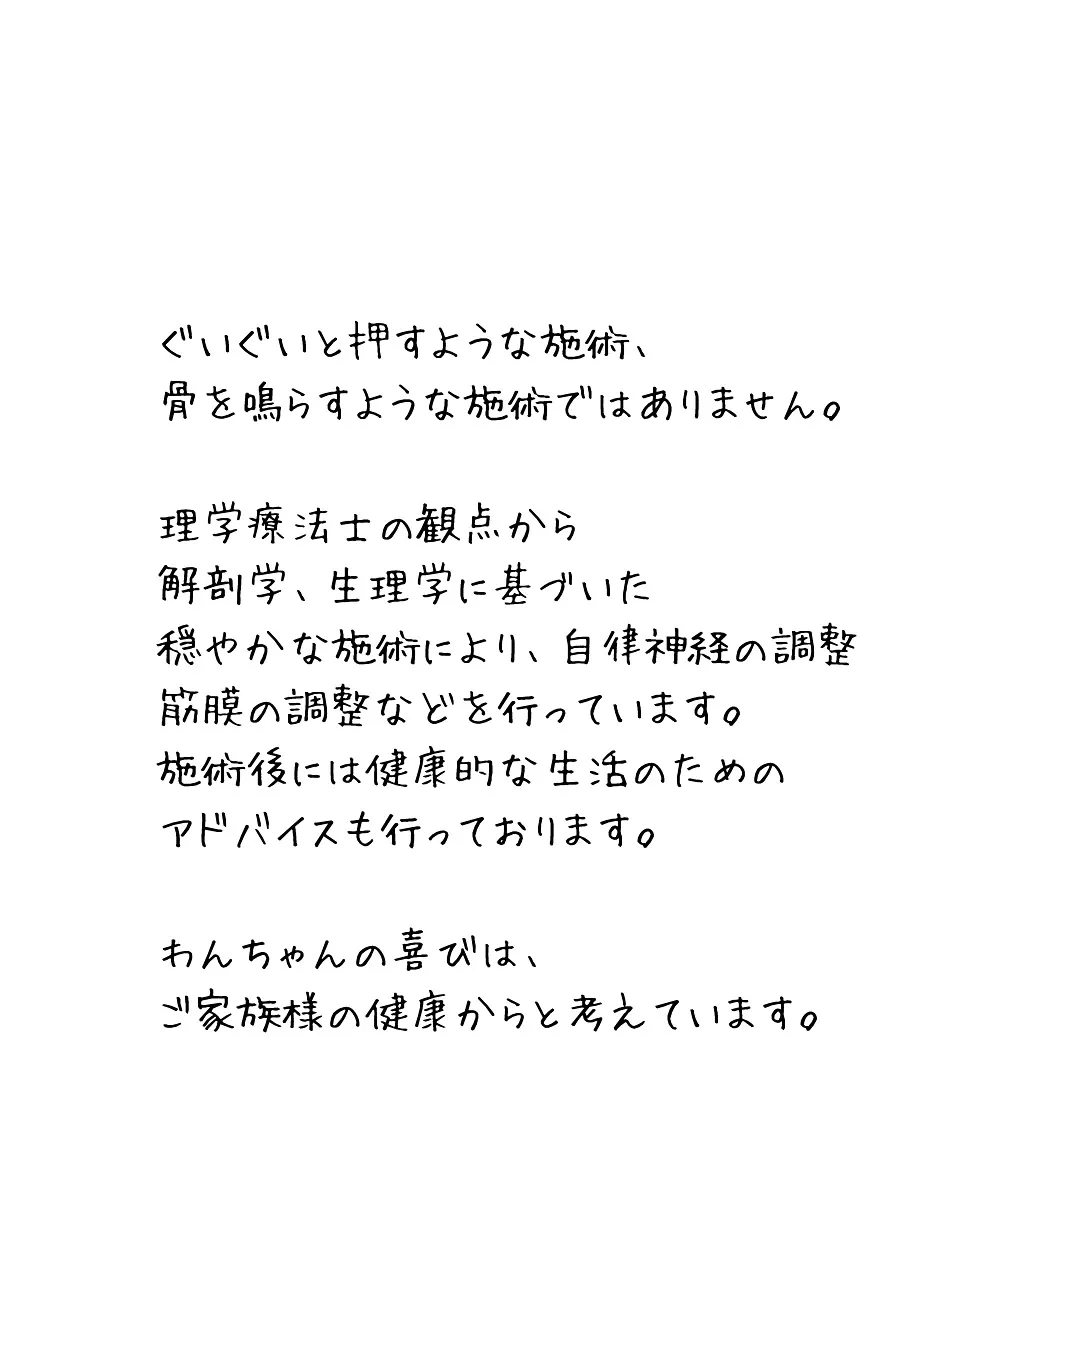 ぐいぐいと押すような施術、
骨を鳴らすような施術ではありません。
理学療法士の観点から
解剖学、生理学に基づいた
穏やかな施術により、自律神経の調整
筋膜の調整などを行っています。
施術後には健康的な生活のための
アドバイスも行っております。
わんちゃんの喜びは、
ご家族様の健康からと考えています。